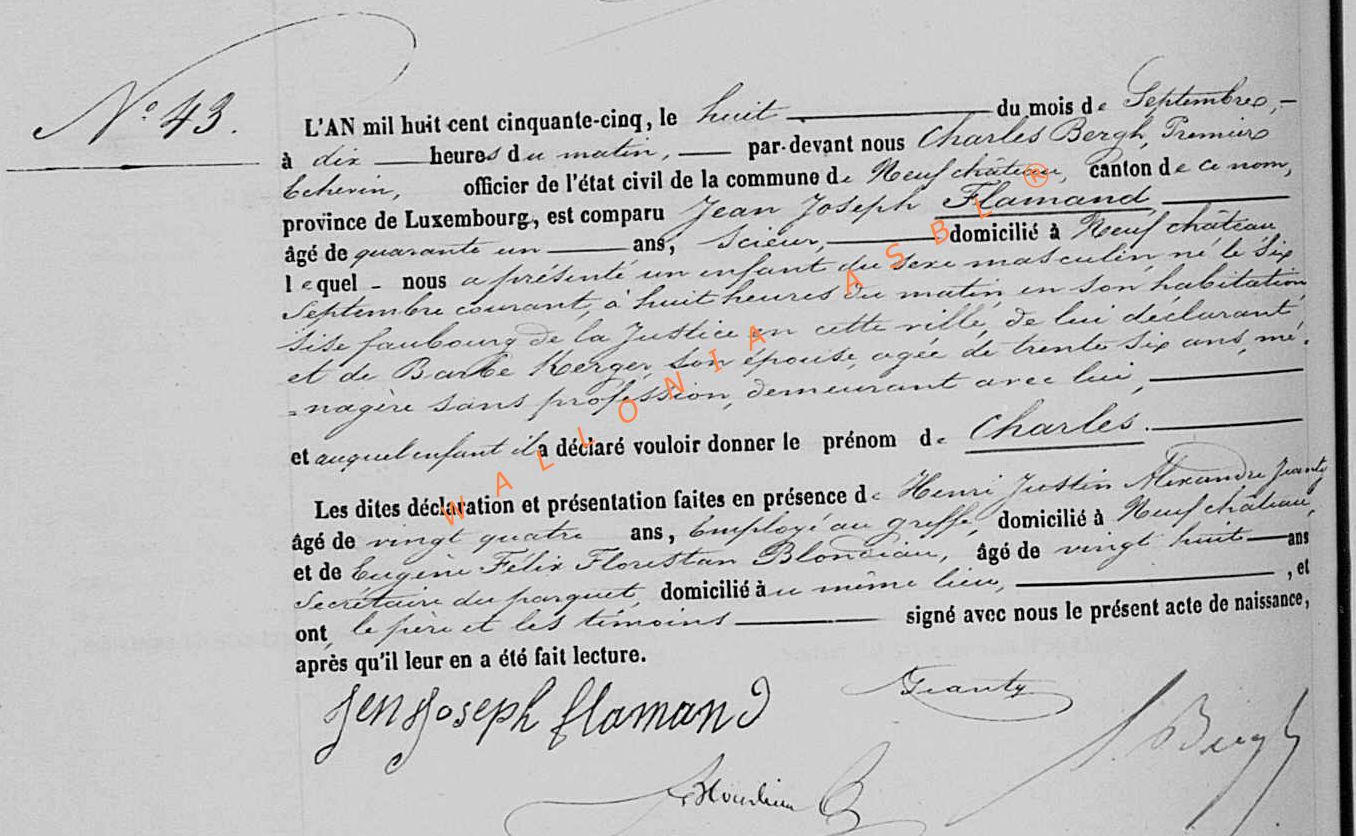 N° 43.
L'AN mil huit cent cinquante-cinq, le huit du mois de Septembre,
à dix heures du matin, par-devant nous Charles Bergh, Premier
Echevin, officier de l'état civil de la commune de Neufchâteau, canton de ce nom,
province de Luxembourg, est comparu Jean Joseph Flamand,
âgé de quarante un ans, Scieur, domicilié à Neufchâteau
lequel nous a présenté un enfant du sexe masculin, né le Six
Septembre courant, à huit heures du matin, en son habitation,
sise faubourg de la Justice en cette ville, de lui déclarant,
et de Barbe Kerger son épouse, agée de trente six ans, mé-
=nagère sans profession, demeurant avec lui,
et auquel enfant il a déclaré vouloir donner le prénom de Charles.
Les dites déclaration et présentation faites en présence de Henri Justin Alexandre Jeanty
âgé de vingt quatre ans, Employé au greffe, domicilié à Neufchâteau,
et de Eugène Félix Florestan Blondiau, âgé de vingt huit ans
Secrétaire du parquet, domicilié au même lieu, , et
ont le père et les témoins signé avec nous le présent acte de naissance,
après qu'il leur en a été fait lecture.
Jen Joseph flamand
Jeanty
Bergh
WALLONIA ASBL ®